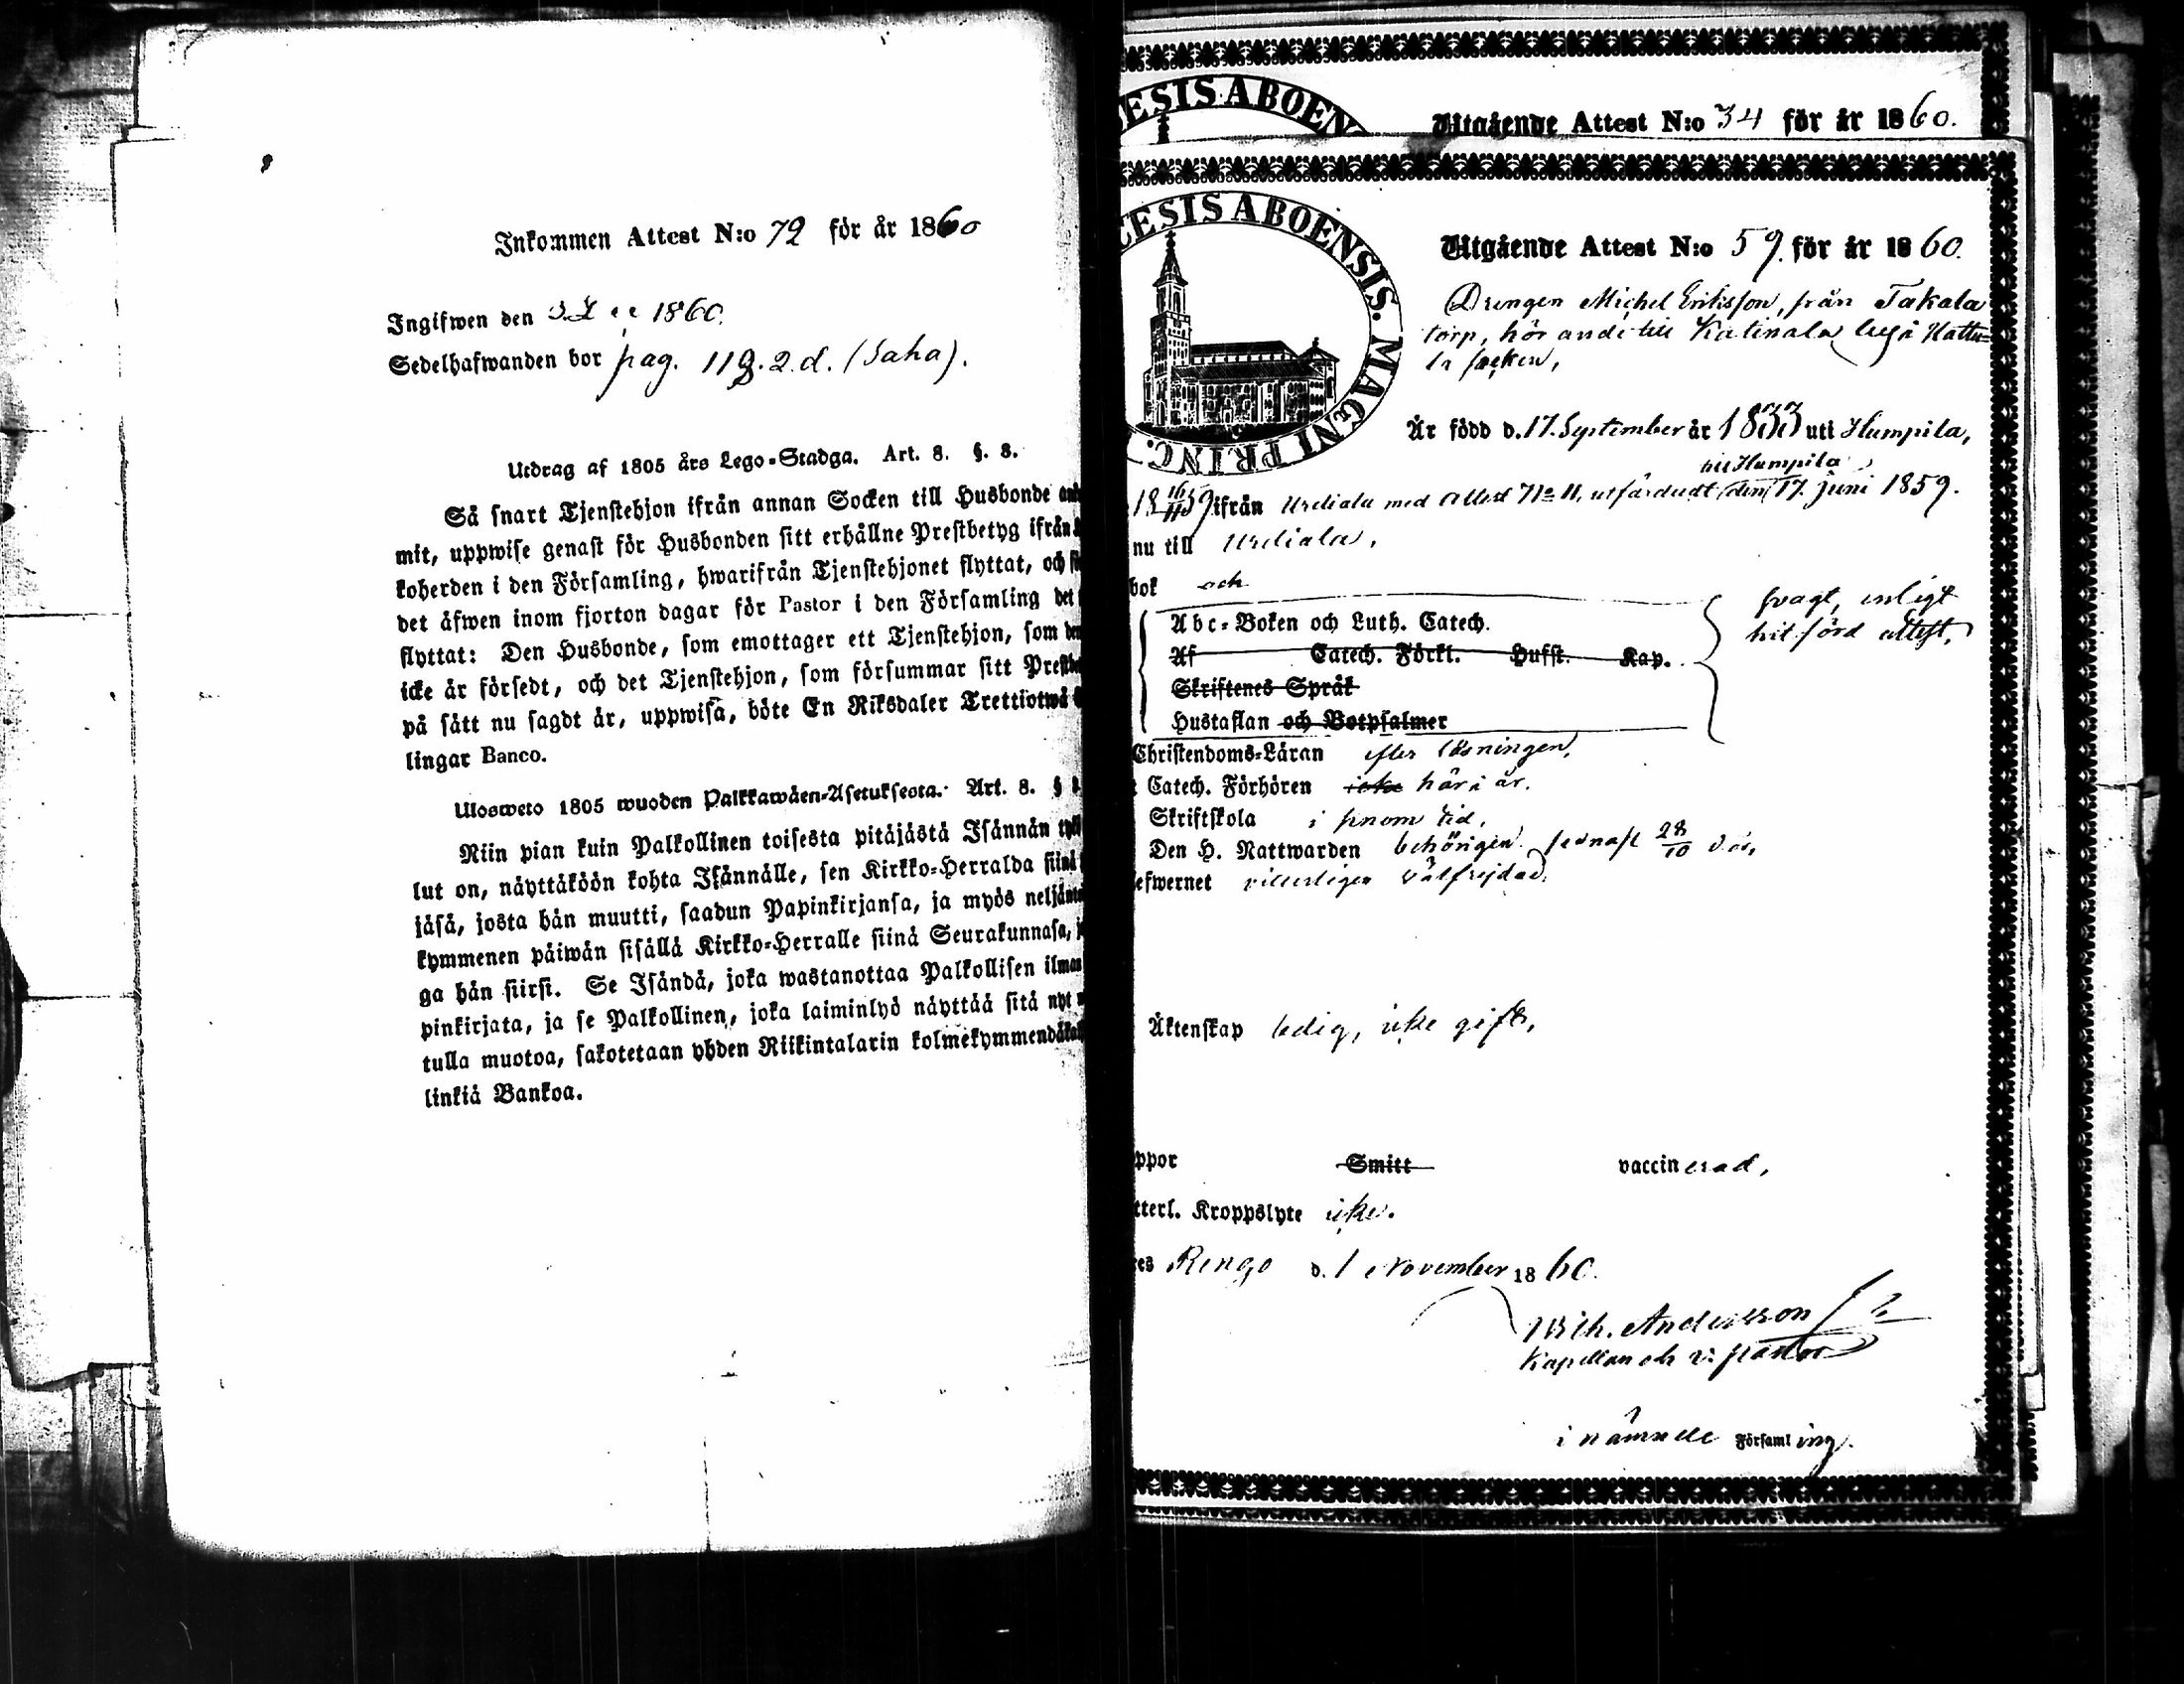 Inkommen Attest N:o 72 för år 1860
Ingifwen den Dec 1860.
Sedelhafwanden bor pag. 119. 2. d. (Saha).
Utdrag af 1805 års Lego-Stadga. Art. 8. §. 8.
Så snart Tjenstehjon ifrån annan Socken till Husbonde
mit, uppwise genast för Husbonden sitt erhållne Prestbetyg ifrån
koherden i den Församling, hwarifrån Tjenstehjonet flyttat, och
det äfwen inom fjorton dagar för Pastor i den Församling det
flyttat: Den Husbonde, som emottager ett Tjenstehjon, som
icke är försedt, och det Tjenstehjon, som försummar sitt
på sätt nu sagdt är, uppwisa, böte En Riksdaler Trettiotwå
lingar Banco.
Ulosweto 1805 wuoden Palkkawäen-Asetuksesta. Art. 8. §
Niin pian kuin Palkollinen toisesta pitäjästä Isännän
lut on, näyttäköön kohta Isännälle, sen Kirkko-Herralda
jäsä, josta hän muutti, saadun Papinkirjansa, ja myös
kymmenen päiwän sisällä Kirkko-Herralle siinä Seurakunnasa,
ga hän siirsi. Se Isändä, joka wastanottaa Palkollisen ilman
pinkirjata, ja se Palkollinen, joka laiminlyö näyttää sitä nyt
tulla muotoa, sakotetaan yhden Riikintalarin
linkiä Bankoa.
ESIS ABOEN
Utgående Attest N:o 34 för år 1860.
CESIS ABOENSIS. MAGNI PRINC.
Utgående Attest N:o 59. för år 1860.
Drengen Michel Eriksson, från Takala
torp, hörande till Katinala by i Hattu-
la socken,
Är född d. 17. September år 1833 uti Humpila,
till Humpila
18 16/11 59 ifrån Urdiala med attest N:o 11, utfärdadt den 17. juni 1859.
nu till Urdiala,
bok och
Abc-Boken och Luth. Catech.
Af Catech. Förkl. Hufst. Kap.
Skriftenes Språk
Hustaflan och Botpsalmer
svagt, enligt
hit förd attest,
Christendoms-Läran efter läsningen,
Catech. Förhören icke här i år.
Skriftskola i sinom tid,
Den H. Nattwarden behörigen sednast 28/10 d. å.,
efwernet välfrejdad.
Äktenskap ledig, icke gift,
ppor Smitt vaccinerad,
tterl. Kroppslyte icke.
es Rengo d. 1 November 1860.
Wilh. Andersson
Kapellan och v: pastor
i nämnde Församling.